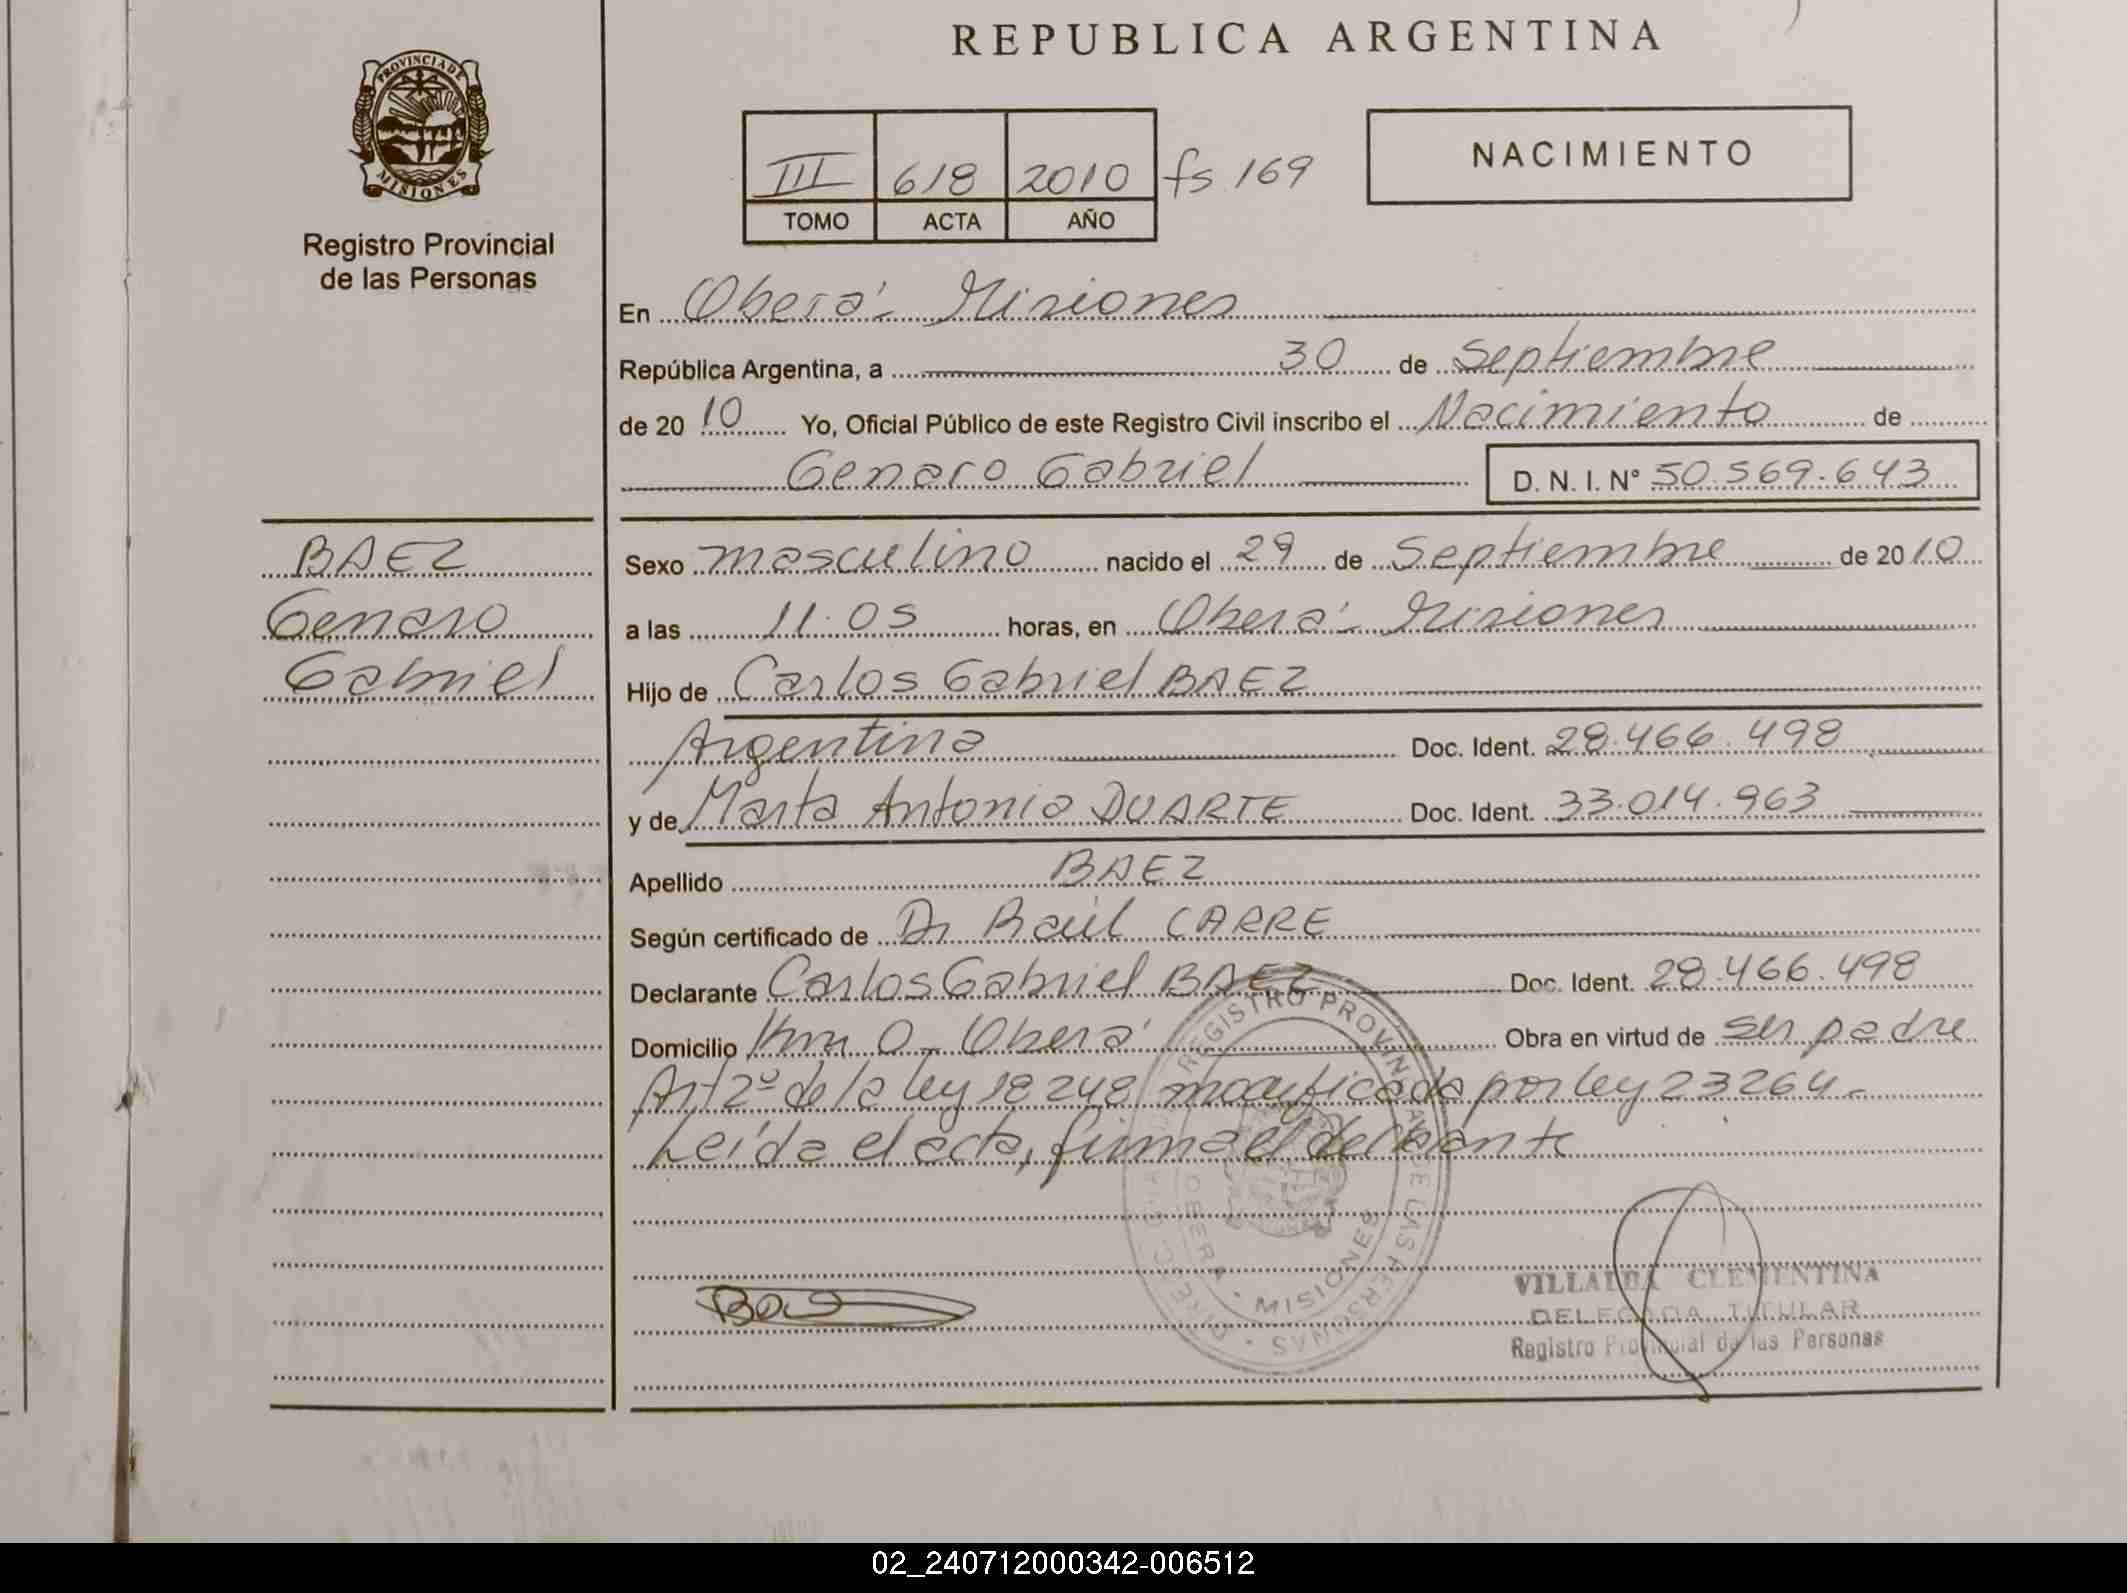 REPUBLICA ARGENTINA
PROVINCIA DE MISIONES
Registro Provincial
de las Personas
III 618 2010 fs 169
TOMO ACTA AÑO
NACIMIENTO
En Oberá - Misiones
República Argentina, a 30 de Septiembre
de 2010 Yo, Oficial Público de este Registro Civil inscribo el Nacimiento de
Genaro Gabriel D. N. I. N° 50.569.643
BAEZ
Genaro
Gabriel
Sexo masculino nacido el 29 de Septiembre de 2010
a las 11.05 horas, en Oberá - Misiones
Hijo de Carlos Gabriel BAEZ
Argentina Doc. Ident. 28.466.498
y de Marta Antonia DUARTE Doc. Ident. 33.014.963
Apellido BAEZ
Según certificado de Dr Raúl CARRE
Declarante Carlos Gabriel BAEZ Doc. Ident. 28.466.498
Domicilio Km 0 - Oberá Obra en virtud de ser padre
Art 2º de la ley 18248 modificada por ley 23264 -
Leída el acta, firma el declarante
REGISTRO PROVINCIAL DE LAS PERSONAS
OBERA • MISIONES
VILLALBA CLEMENTINA
DELEGADA TITULAR
Registro Provincial de las Personas
02_240712000342-006512